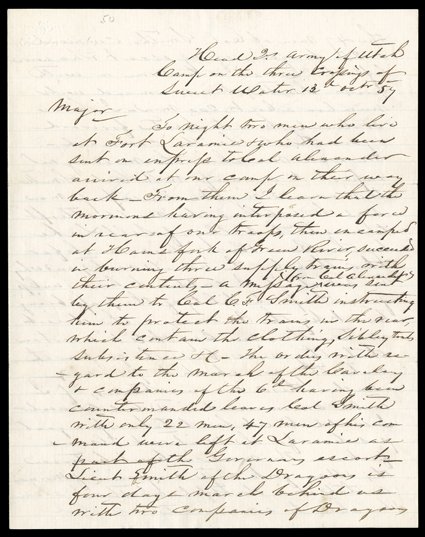 50
Head Qs. Army of Utah
Camp on the three crossings of
Sweet Water 13th Octr 57
Major
To night two men who live
at Fort Laramie & who had been
sent on express to Col Alexander
arrived at our camp on their way
back – From them I learn that the
mormons having interposed a force
in rear of our troops, then encamped
at Hams fork of Green River succeeded
in burning three supply trains with
their contents – a message from Col Alexander was sent
by them to Col C.F. Smith instructing
him to protect the trains in the rear,
which contain the clothing, Sibley tents
subsistence &c – The orders with re-
gard to the march of the Cavalry
& companies of the 6th having been
countermanded leaves Col Smith
with only 22 men, 47 men of his com
mand were left at Laramie as
part of the Governors escort –
Lieut Smith of the Dragoons is
four days march behind us
with two companies of Dragoons